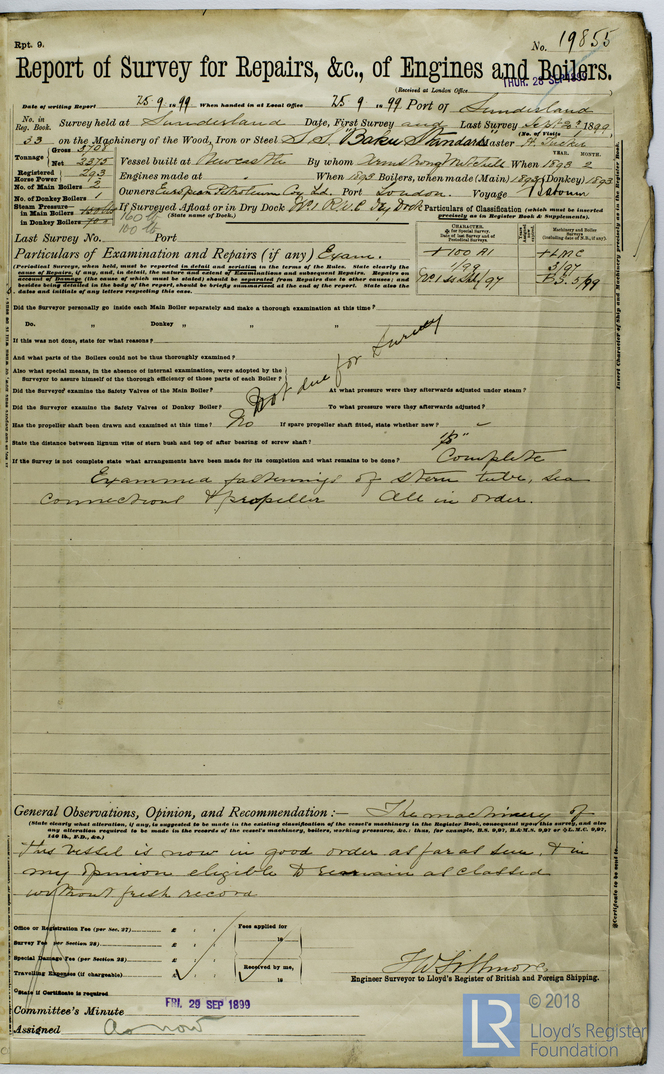 Rpt. 9.
No. 19855
Report of Survey for Repairs, &c., of Engines and Boilers.
(Received at London Office THUR. 28 SEP 1899 )
Date of writing Report 25 9 1899 When handed in at Local Office 25 9 1899 Port of Sunderland
No. in Reg. Book. Survey held at Sunderland Date, First Survey and Last Survey Sept 23rd 1899
(No. of Visits )
33 on the Machinery of the Wood, Iron or Steel S.S. "Baku Standard" Master A. Tucker
Tonnage Gross 3708
Net 2375 Vessel built at Newcastle By whom Armstrong Mitchell When 1893 2
YEAR. MONTH.
Registered Horse Power 293 Engines made at When 1893 Boilers, when made (Main) 1893 (Donkey) 1893
No. of Main Boilers 2
Owners European Petroleum Coy Ld. Port London. Voyage
No. of Donkey Boilers 1
Steam Pressure in Main Boilers 160 lb
in Donkey Boilers 100 lb
If Surveyed Afloat or in Dry Dock No 1 R.W.C Dry Dock
(State name of Dock.)
Particulars of Classification (which must be inserted precisely as in Register Book & Supplements).
CHARACTER.
for Special Survey.
Date of last Survey and of Periodical Surveys.
Machinery and Boiler Surveys
(including date of N.B., if any).
+100 A1
1/99
No 1 97
+LMC
3/97
B.S. 3/99
Last Survey No. Port
Particulars of Examination and Repairs (if any) Exam.
(Periodical Surveys, when held, must be reported in detail and seriatim in the terms of the Rules. State clearly the
cause of Repairs, if any, and, in detail, the nature and extent of Examinations and subsequent Repairs. Repairs on
account of Damage (the cause of which must be stated) should be separated from Repairs due to other causes; and
besides being detailed in the body of the report, should be briefly summarised at the end of the report. State also the
dates and initials of any letters respecting this case.
Did the Surveyor personally go inside each Main Boiler separately and make a thorough examination at this time?
Do. " Donkey " " "
If this was not done, state for what reasons?
And what parts of the Boilers could not be thus thoroughly examined?
Also what special means, in the absence of internal examination, were adopted by the
Surveyor to assure himself of the thorough efficiency of those parts of each Boiler?
Not due for Survey
Did the Surveyor examine the Safety Valves of the Main Boiler? At what pressure were they afterwards adjusted under steam?
Did the Surveyor examine the Safety Valves of Donkey Boiler? To what pressure were they afterwards adjusted?
Has the propeller shaft been drawn and examined at this time? No If spare propeller shaft fitted, state whether new?
State the distance between lignum vitæ of stern bush and top of after bearing of screw shaft?
If the Survey is not complete state what arrangements have been made for its completion and what remains to be done? Complete
Examined fastenings of stern tube, sea
connections & propeller All in order.
General Observations, Opinion, and Recommendation :— The machinery of
(State clearly what alteration, if any, is suggested to be made in the existing classification of the vessel's machinery in the Register Book, consequent upon this survey, and also
any alteration required to be made in the records of the vessel's machinery, boilers, working pressures, &c.: thus, for example, B.S. 9,97, B.&M.S. 9,97 or L.M.C. 9,97,
140 lb., F.D., &c.)
this vessel is now in good order as far as seen, & in
my opinion eligible to remain as classed
without fresh record
Office or Registration Fee (per Sec. 27) £ : :
Fees applied for
18
Survey Fee per Section 28) £ : :
Special Damage Fee (per Section 28) £ : :
Received by me,
18
Travelling Expenses (if chargeable) £ : :
Engineer Surveyor to Lloyd's Register of British and Foreign Shipping.
State if Certificate is required
Committee's Minute FRI. 29 SEP 1899
Assigned as now
Insert Character of Ship and Machinery precisely as in the Register Book.
Certificate to be sent to
LR
© 2018
Lloyd's Register
Foundation